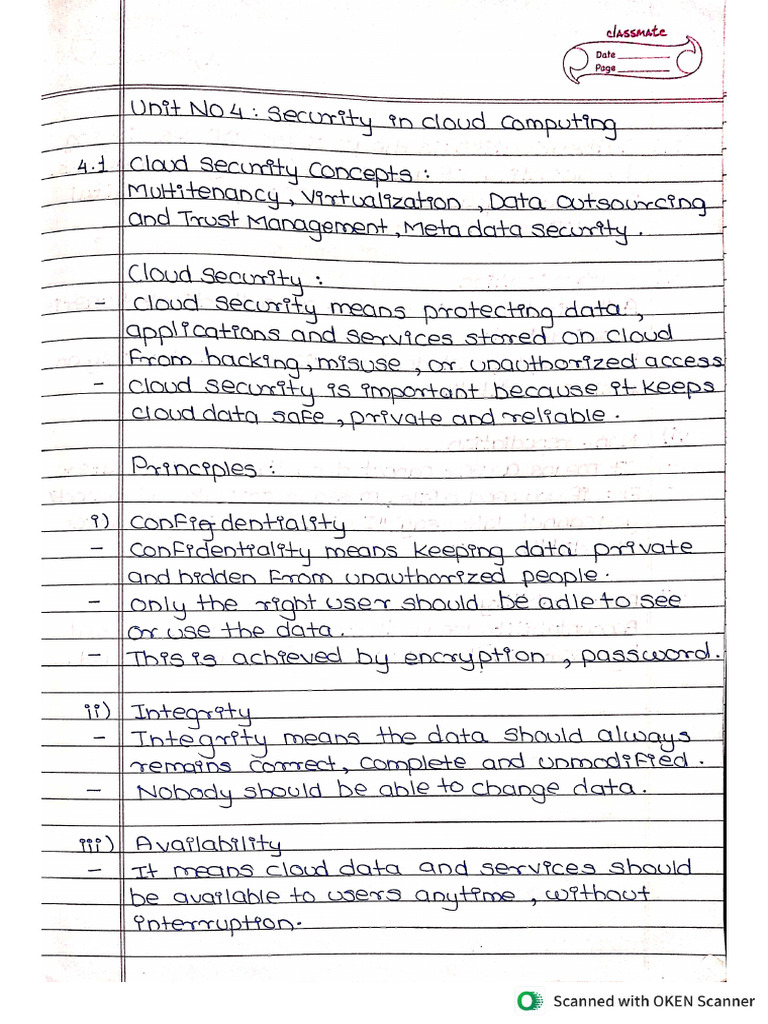 classmate
Date
Page
Unit No 4 : Security in cloud computing
4.1 Cloud Security Concepts :
Multitenancy, Virtualization, Data outsourcing
and Trust Management, Meta data security.
Cloud security :
- Cloud security means protecting data,
applications and services stored on cloud
from hacking, misuse, or unauthorized access
- cloud security is important because it keeps
cloud data safe, private and reliable.
Principles :
i) Configdentiality
- Confidentiality means keeping data private
and hidden from unauthorized people.
- only the right user should be adle to see
or use the data.
- This is achieved by encryption, password.
ii) Integrity
- Integrity means the data should always
remains correct, complete and unmodified.
- Nobody should be able to change data.
iii) Availability
- It means cloud data and services should
be available to users anytime, without
interruption.
Scanned with OKEN Scanner